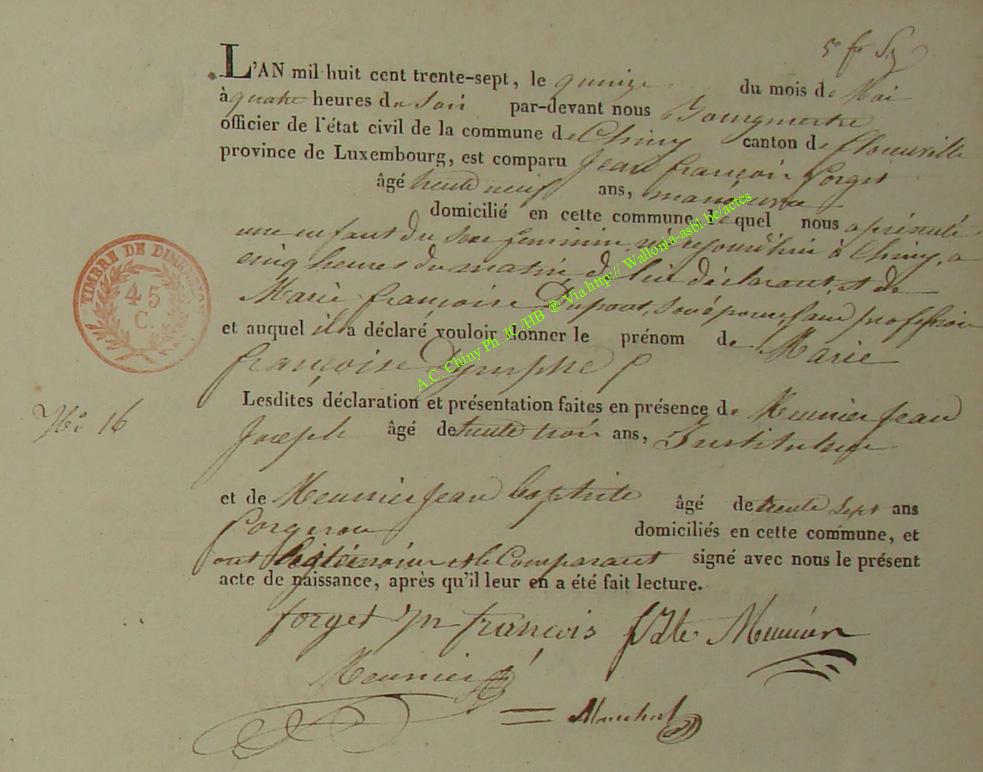 5e fr
L'AN mil huit cent trente-sept, le quinze du mois de Mai
à quatre heures du soir par-devant nous Bourgmestre
officier de l'état civil de la commune de Chiny canton de florenville
province de Luxembourg, est comparu Jean françois forget
âgé trente neuf ans, manœuvre
domicilié en cette commune lequel nous a présenté
une enfant du sexe feminin né cejourd'hui à Chiny, a
cinq heures du matin de lui déclarant et de
Marie françoise Dupont, son épouse, sans profession
et auquel il a déclaré vouloir donner le prénom de Marie
françoise Dymphe
TIMBRE DE DIMENSION
45
C.
No 16
Lesdites déclaration et présentation faites en présence de Meunier Jean
Joseph âgé de trente trois ans, Instituteur
et de Meunier Jean Baptiste âgé de trente sept ans
forgeron domiciliés en cette commune, et
ont les témoins et le Comparant signé avec nous le présent
acte de naissance, après qu'il leur en a été fait lecture.
forget jn françois JBte Meunier
Meunier
Marchal
A.C. Chiny Ph. /HB ® Via http:// Wallonia-asbl.be/actes